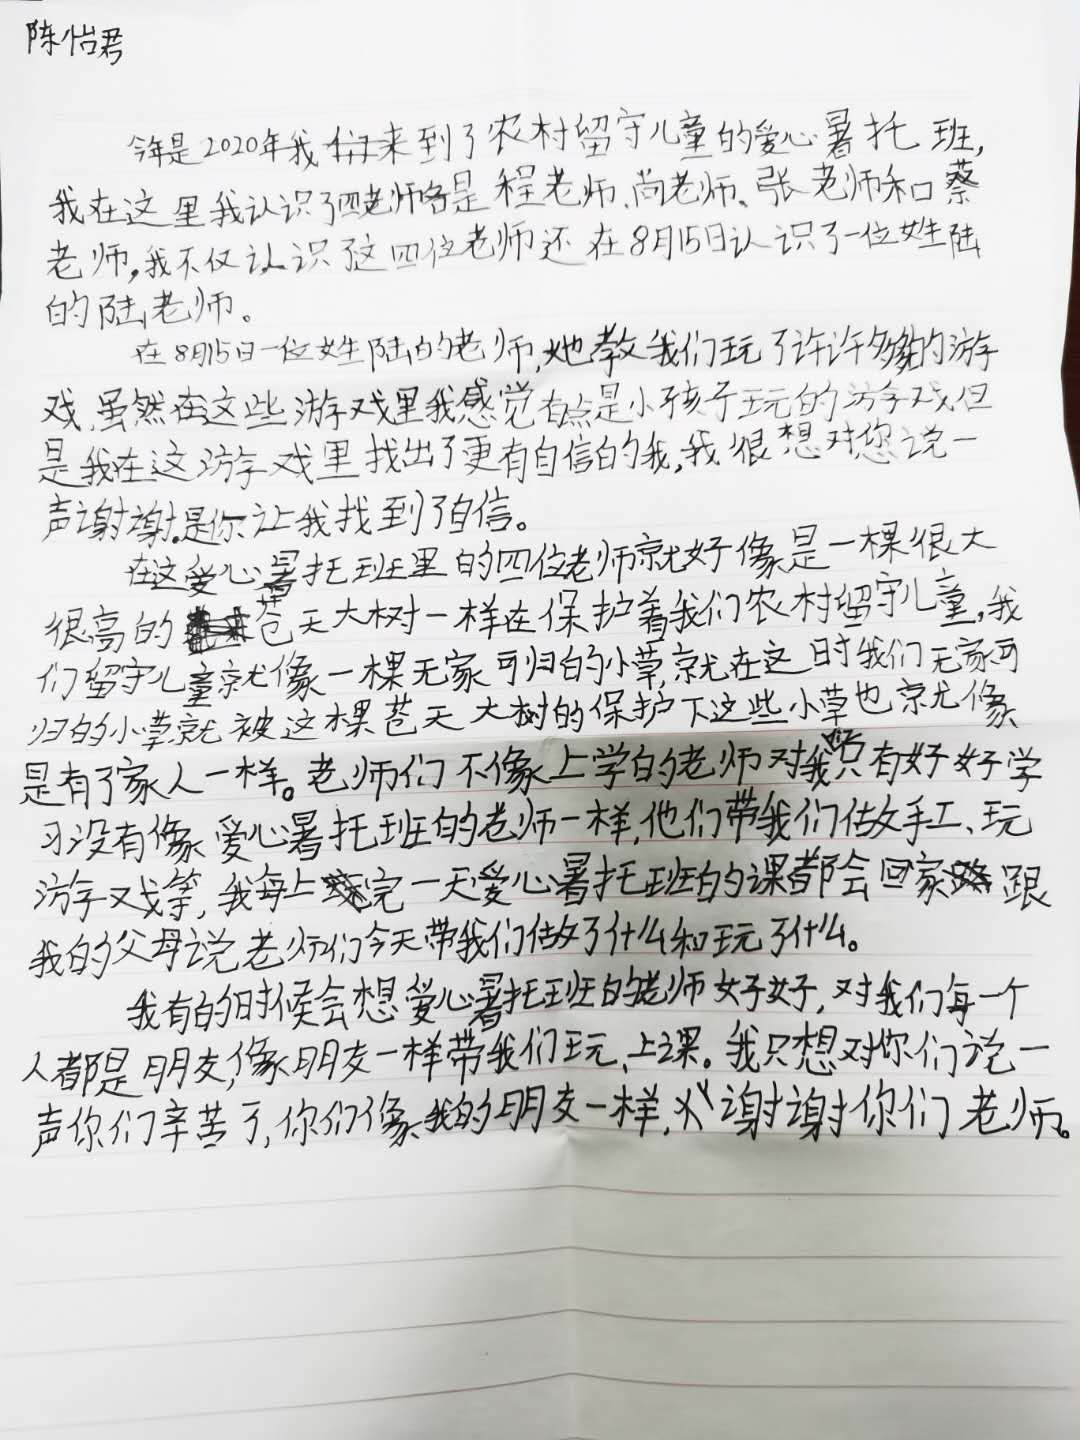 陈怡君
今年是2020年我来到了农村留守儿童的爱心暑托班,
我在这里我认识了四老师各是程老师、尚老师、张老师和蔡
老师,我不仅认识了这四位老师还在8月15日认识了一位姓陆
的陆老师。
在8月15日一位姓陆的老师,她教我们玩了许许多多的游
戏,虽然在这些游戏里我感觉有点是小孩子玩的游戏但
是我在这游戏里找出了更有自信的我,我很想对您说一
声谢谢,是你让我找到了自信。
在这爱心暑托班里的四位老师就好像是一棵很大
很高的苍天大树一样在保护着我们农村留守儿童,我
们留守儿童就像一棵无家可归的小草,就在这时我们无家可
归的小草就被这棵苍天大树的保护下这些小草也就像
是有了家人一样。老师们不像上学的老师对我只有好好学
习没有像爱心暑托班的老师一样,他们带我们做手工、玩
游戏等,我每上完一天爱心暑托班的课都会回家跟
我的父母说老师们今天带我们做了什么和玩了什么。
我有的时候会想爱心暑托班的老师好好,对我们每一个
人都是朋友,像朋友一样带我们玩、上课。我只想对你们说一
声你们辛苦了,你们像我的朋友一样,谢谢你们老师。